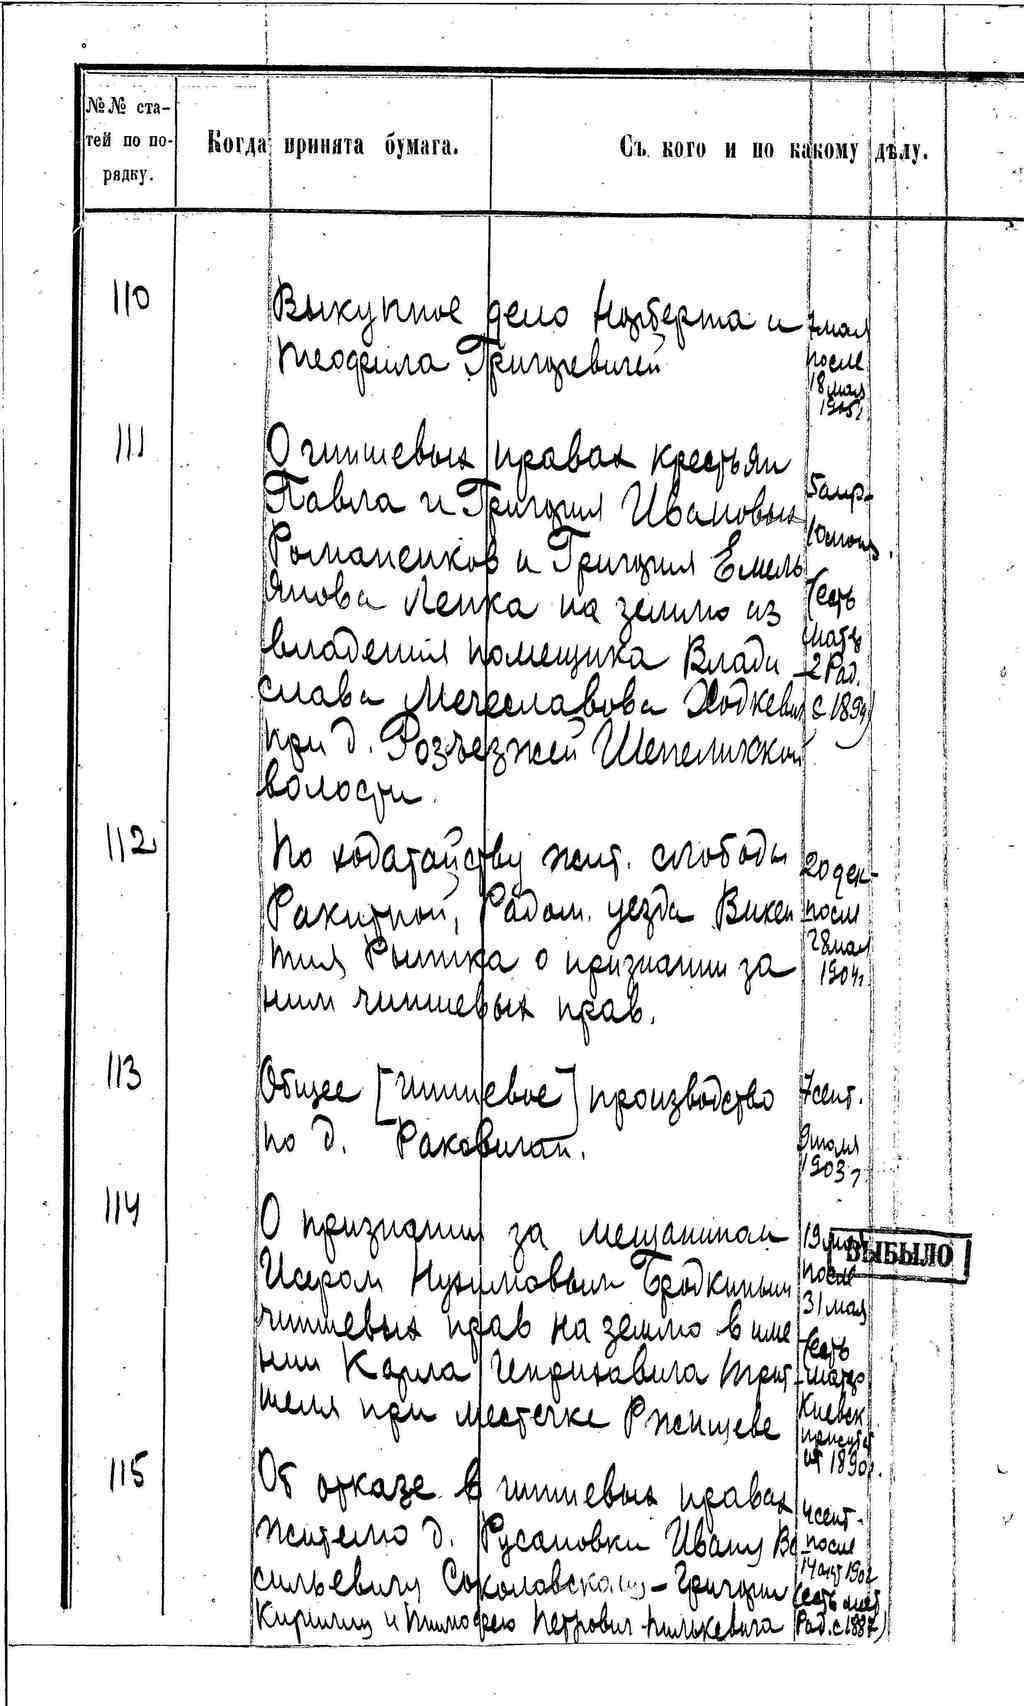 №№ ста-
тей по по-
рядку.
Когда принята бумага.
Съ кого и по какому дѣлу.
110
Выкупное дело Норберта и
Теофила Григоревичей
7 мая
после
18 мая
1905г.
111
О чиншевых правах крестьян
Павла и Григория Ивановых
Романенков и Григория Емель
янова Лепка на землю из
владения помещика Влади
слава Мечеславова Ходкевич
при д. Розъезжей Шепелихской
волости.
(есть
матер
2 Рад.
112
По ходатайству жит. слободы
Ракитной, Радом. уезда Викен
тия о признании за
ним чиншевых прав.
20 дек-
после
28 мая
1904г.
113
Общее [чиншевое] производство
по д. Раковичи.
7 сент.
9 июля
1903 г
114
О признании за мещанином
Исером Нухимовым Бродкиным
чиншевых прав на землю в име
нии Карла Генриховича Трит
шеля при местечке Ржищеве
19
после
31 мая
(есть
матер
Киевск
присут
от 1890г.
ВЫБЫЛО
115
Об отказе в чиншевых правах
жителю д. Русановки Ивану Ва
сильевичу Соколовскому - Григорию
Кирилиц и Тимофею Петрович
4 сент-
после
14 авг 1902
(есть мат
Рад. с 1887)